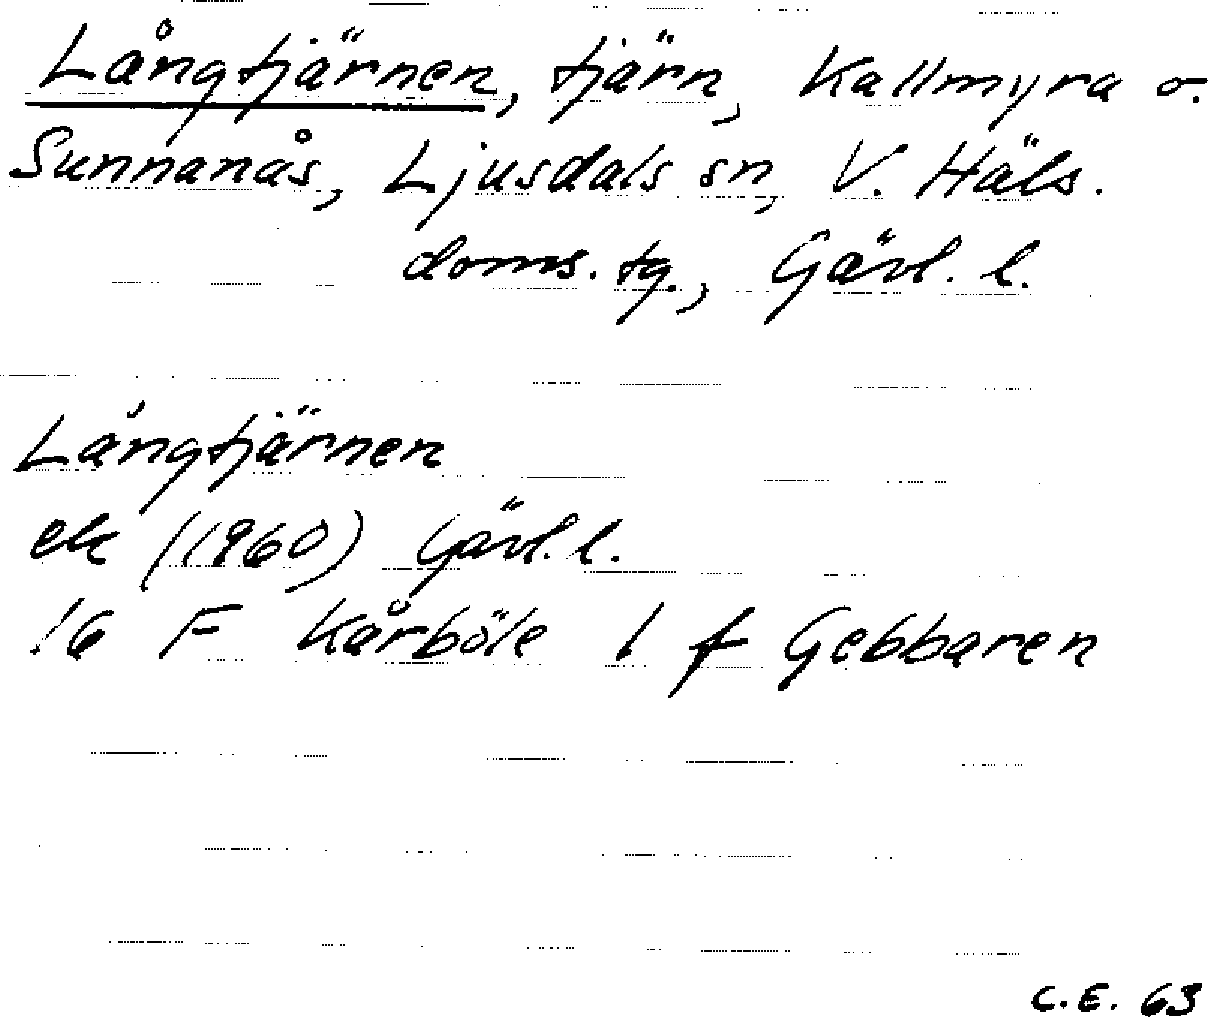 Långtjärnen, tjärn, Kallmyra o.
Sunnanås, Ljusdals sn, V. Häls.
doms. tg., Gävl. l.
Långtjärnen
ek (1960) Gävl. l.
16 F Kårböle 1 f Gebbaren
C.E. 63